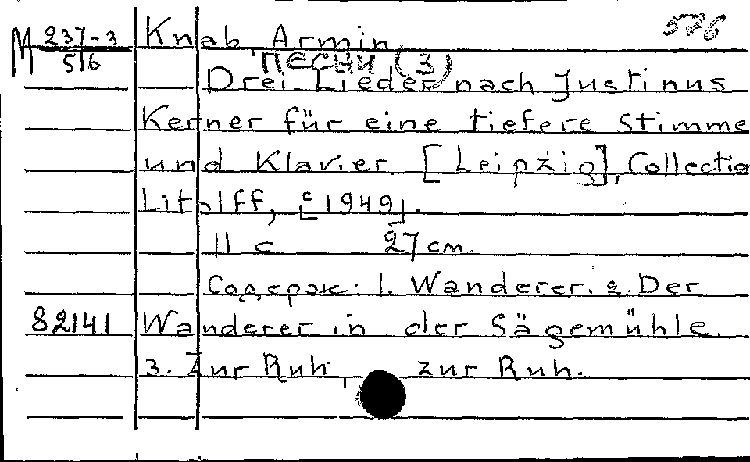 M 237-3
516
Knab, Armin
576
Песни (3)
Drei Lieder nach Justinus
Kerner für eine tiefere Stimme
und Klavier. [Leipzig], Collectio
Litolff, [c 1949].
11 с 27 cm.
Содерж: 1. Wanderer. 2. Der
82141 Wanderer in der Sägemühle.
3. Zur Ruh, zur Ruh.